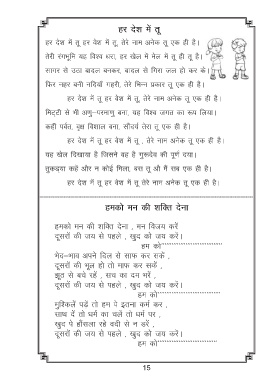 हर देश में तू
हर देश में तू हर वेश में तू, तेरे नाम अनेक तू एक ही है।
तेरी रंगभूमि यह विश्व धरा, हर खेल में मेल में तू ही तू है।
सागर से उठा बादल बनकर, बादल से गिरा जल हो कर के।
फिर नहर बनी नदियाँ गहरी, तेरे भिन्न प्रकार तू एक ही है।
हर देश में तू हर वेश में तू, तेरे नाम अनेक तू एक ही है।
मिट्टी से भी अणु-परमाणु बना, यह विश्व जगत का रूप लिया।
कहीं पर्वत, वृक्ष विशाल बना, सौंदर्य तेरा तू एक ही है।
हर देश में तू हर वेश में तू , तेरे नाम अनेक तू एक ही है।
यह खेल दिखाया है जिसने वह है गुरूदेव की पूर्ण दया।
तुकड्या कहे और न कोई मिला, बस तू औ मैं सब एक ही है।
हर देश में तू हर वेश में तू तेरे नाम अनेक तू एक ही है।
हमको मन की शक्ति देना
हमको मन की शक्ति देना , मन विजय करें
दूसरों की जय से पहले , खुद को जय करें।
हम को
भेद-भाव अपने दिल से साफ कर सकें ,
दूसरों की भूल हो तो माफ कर सकें ,
झूठ से बचे रहें , सच का दम भरें ,
दूसरों की जय से पहले , खुद को जय करें।
हम को
मुश्किलें पड़ें तो हम पे इतना कर्म कर ,
साथ दें तो धर्म का चलें तो धर्म पर ,
खुद पे हौंसला रहे बदी से न डरें ,
दूसरों की जय से पहले , खुद को जय करें।
हम को
15